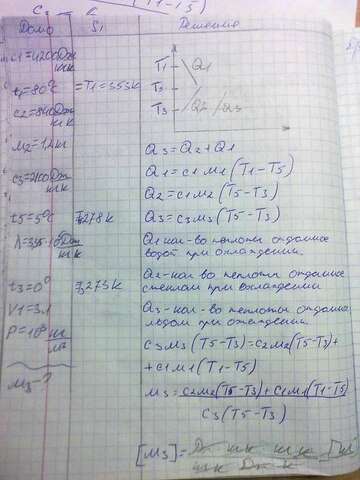 Дано S1 Решение
c1=4200 Дж/кг К
t1=80°c =T1=353K
c2=840 Дж/кг К
c3=2100 Дж/кг К
t5=5°c 278k
t3=0° 273k
V1=3л
m3-?
T1 Q1
T3 Q2 Q3
Q3=Q2+Q1
Q1=c1m1(T1-T5)
Q2=c1m2(T5-T3)
Q3=c3m3(T5-T3)
Q1 кол-во теплоты отданное
водой при охлаждении.
Q2-кол-во теплоты отданное
стеклом при охлаждении
Q3-кол-во теплоты отданое
льдом при охлаждении.
c3m3(T5-T3)=c2m2(T5-T3)+
+c1m1(T1-T5)
m3=c2m2(T5-T3)+c1m1(T1-T5)
c3(T5-T3)
[m3]=